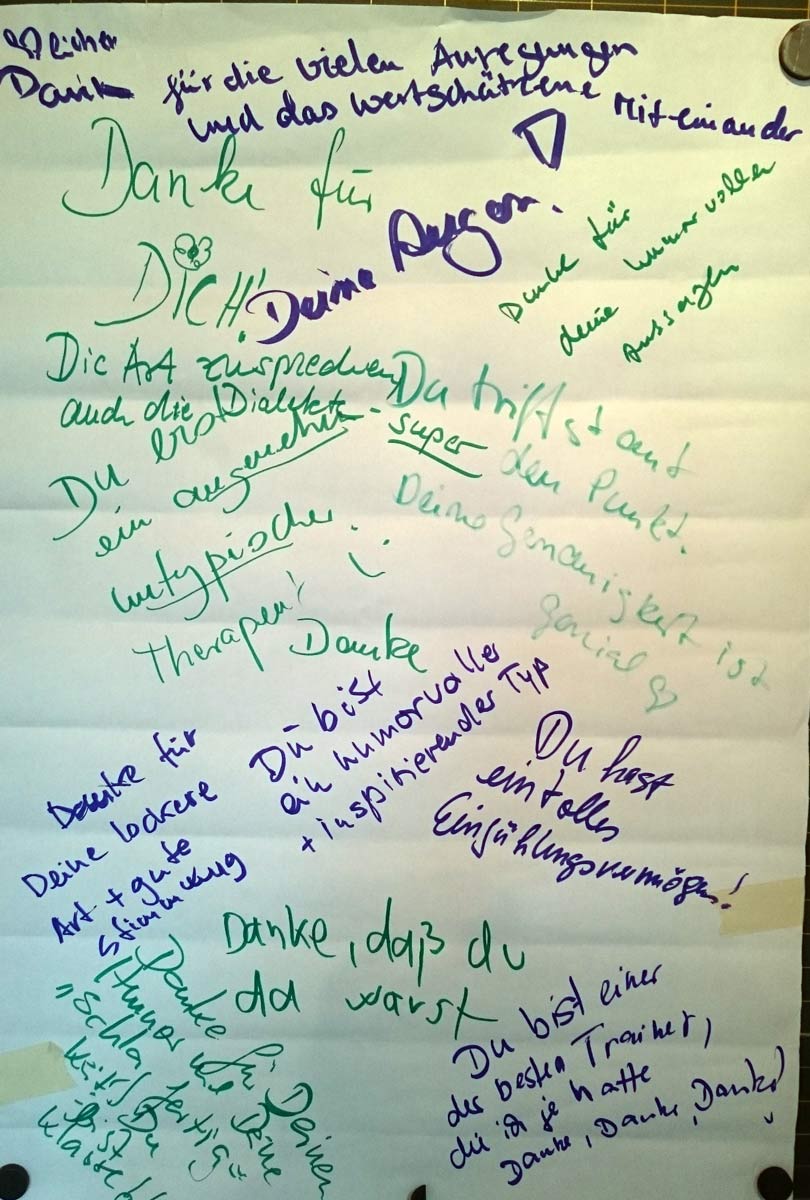 Herzlicher
Dank für die vielen Anregungen
und das wertschätzene Miteinander
Danke für
DICH!
Deine Augen.
Danke für
deine humorvollen
Aussagen
Die Art zu sprechen
auch die Dialekte.
Du triffst auf
super den Punkt.
Deine Genauigkeit ist
genial
Du bist
ein angenehm
untypischer
Therapeut
Danke
Danke für
Deine lockere
Art + gute
Stimmung
Du bist
ein humorvoller
+ inspirierender Typ
Du hast
ein tolles
Einfühlungsvermögen!
Danke, daß du
da warst
Danke für Deinen
Humor und Deine
"Schlagfertig"
keit! Du
bist
klasse!
Du bist einer
der besten Trainer,
die ich je hatte
Danke, Danke, Danke!